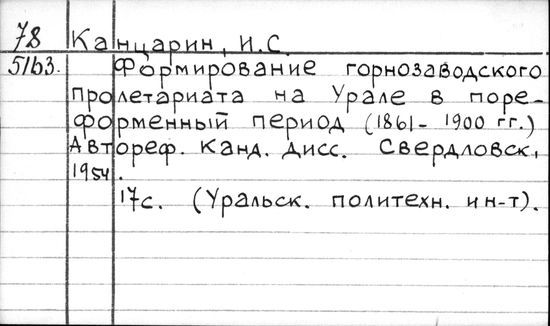 78 Канцарин, И.С.
51б3. Формирование горнозаводского
пролетариата на Урале в поре-
форменный период (1861-1900 гг.)
Автореф. канд. дисс. Свердловск,
1954.
17с. (Уральск. политехн. ин-т).